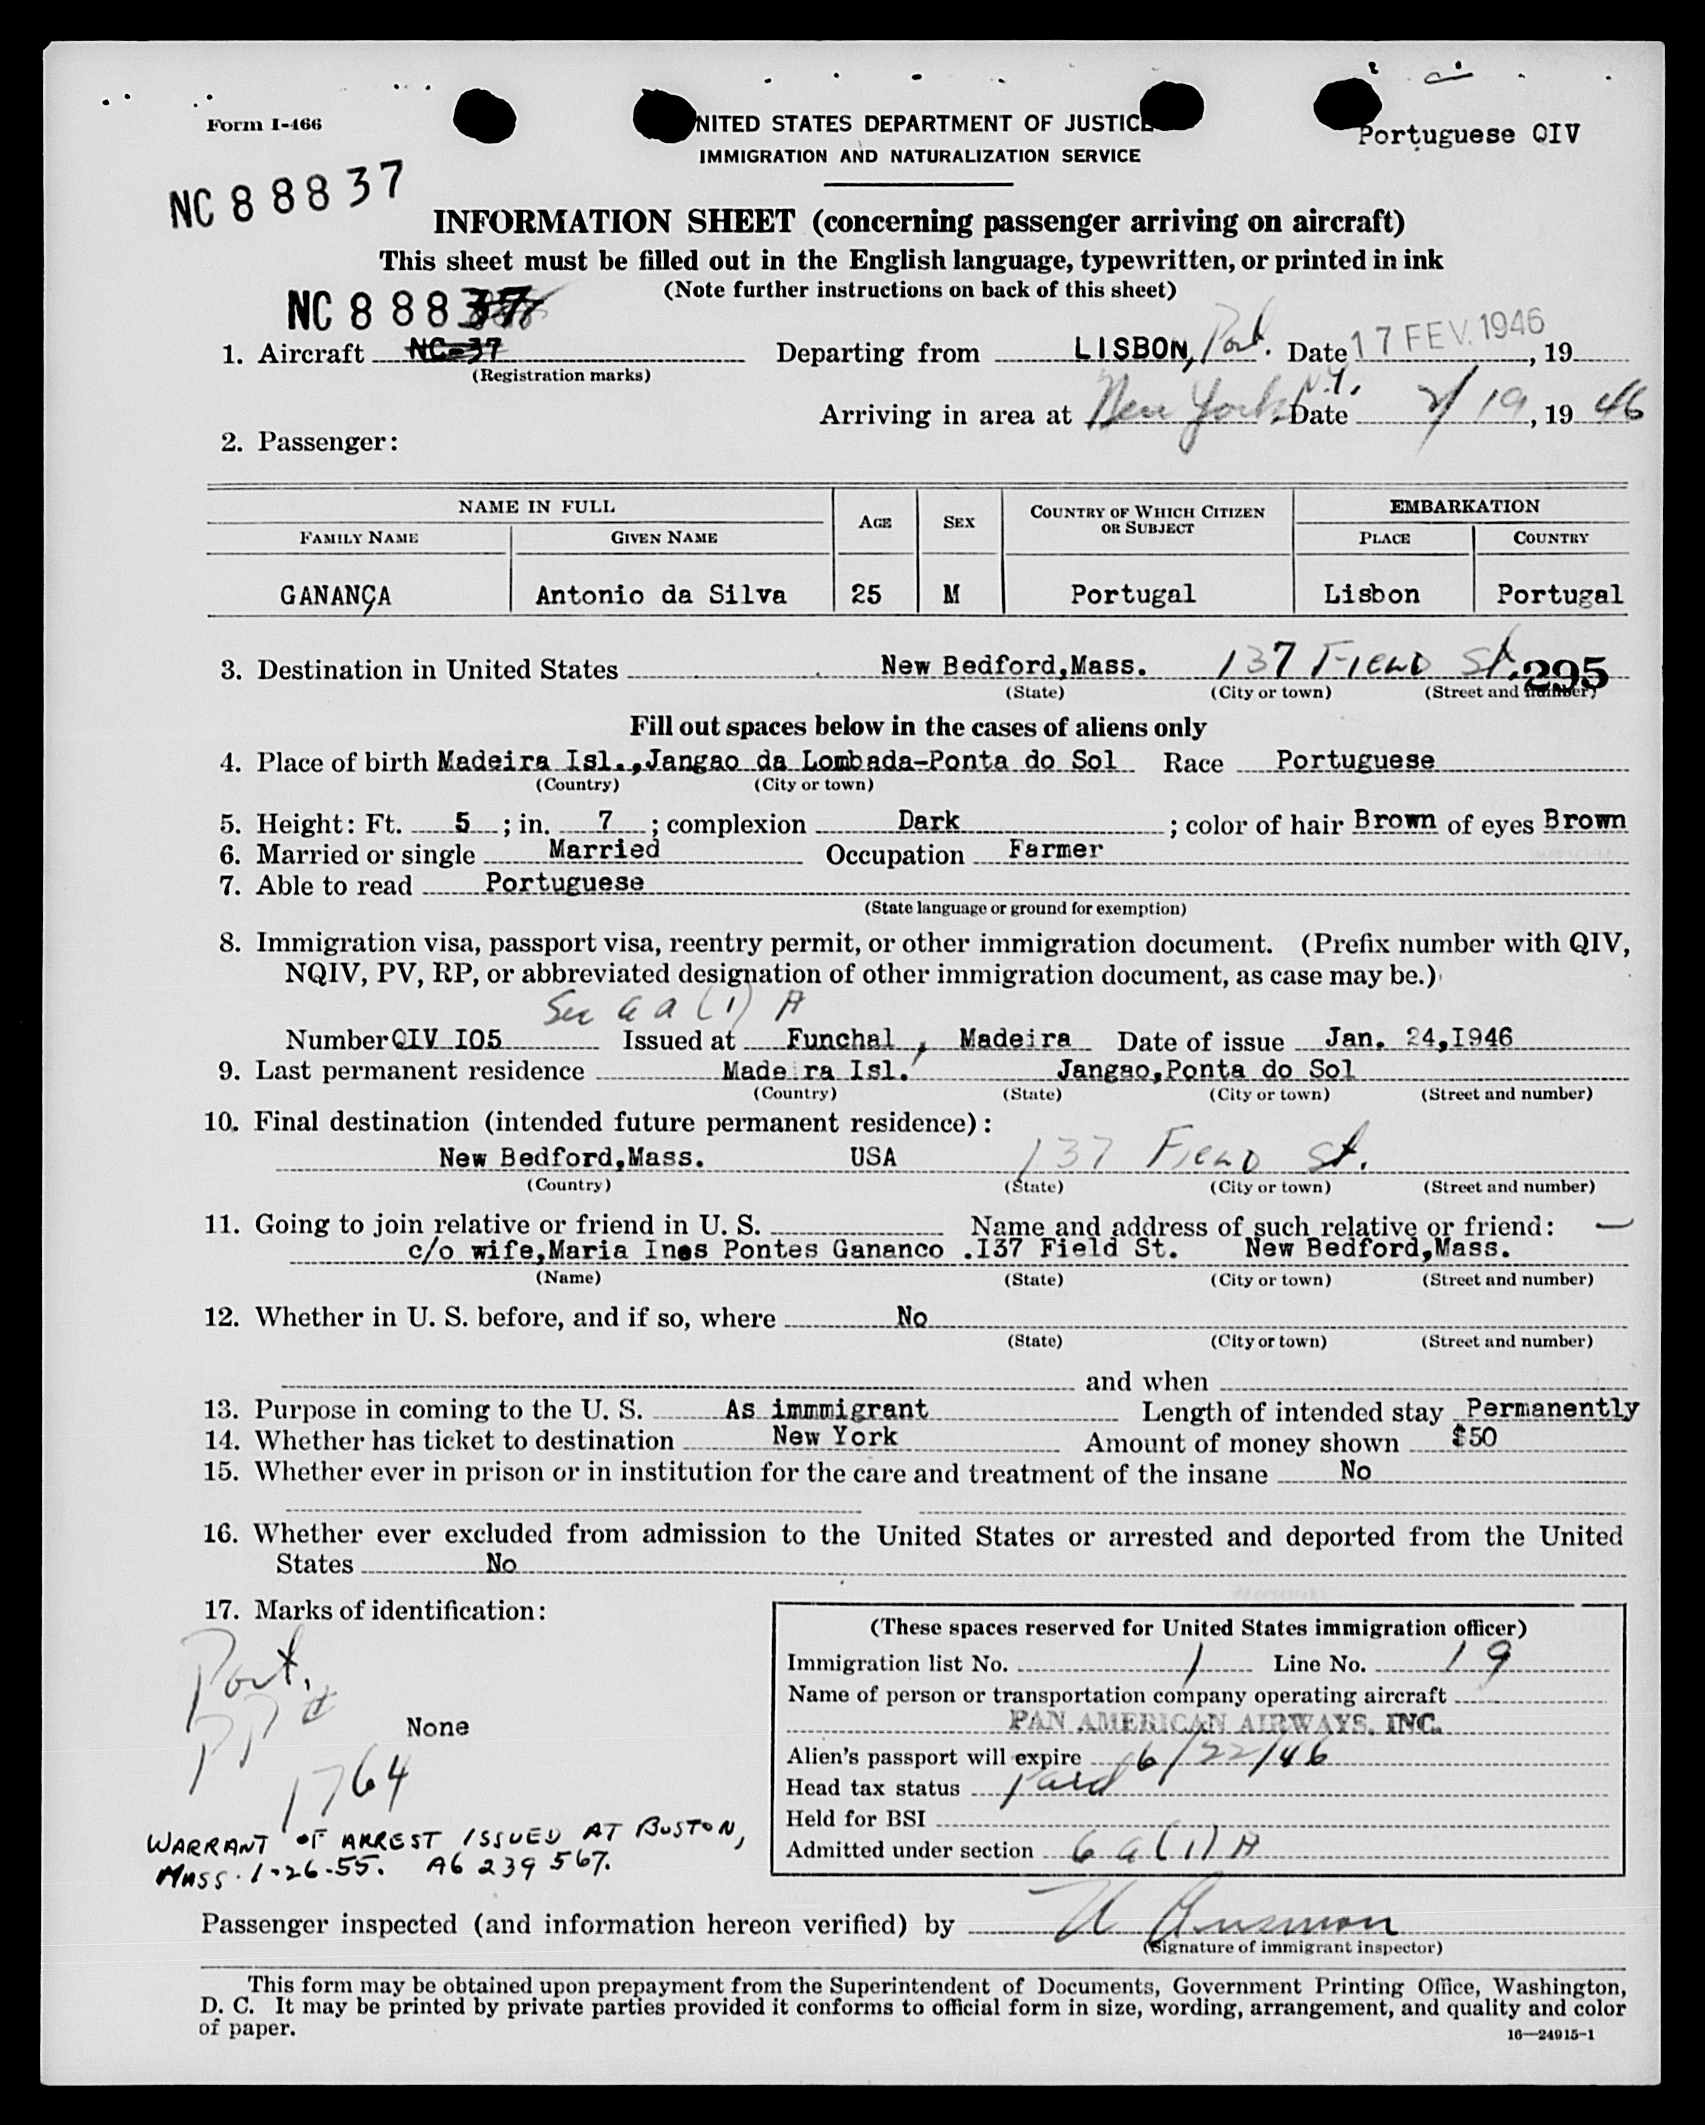 Form I-466
NITED STATES DEPARTMENT OF JUSTICE
Portuguese QIV
IMMIGRATION AND NATURALIZATION SERVICE
NC 88837
INFORMATION SHEET (concerning passenger arriving on aircraft)
This sheet must be filled out in the English language, typewritten, or printed in ink
(Note further instructions on back of this sheet)
NC 88837
1. Aircraft NC-37 Departing from LISBON, Port. Date 17 FEV. 1946, 19
(Registration marks)
Arriving in area at New York, N.Y. Date 2/19, 19 46
2. Passenger:
NAME IN FULL AGE SEX COUNTRY OF WHICH CITIZEN OR SUBJECT EMBARKATION
FAMILY NAME GIVEN NAME PLACE COUNTRY
GANANÇA Antonio da Silva 25 M Portugal Lisbon Portugal
3. Destination in United States New Bedford,Mass. 137 FIELD St. 295
(State) (City or town) (Street and number)
Fill out spaces below in the cases of aliens only
4. Place of birth Madeira Isl.,Jangao da Lombada-Ponta do Sol Race Portuguese
(Country) (City or town)
5. Height: Ft. 5 ; in. 7 ; complexion Dark ; color of hair Brown of eyes Brown
6. Married or single Married Occupation Farmer
7. Able to read Portuguese
(State language or ground for exemption)
8. Immigration visa, passport visa, reentry permit, or other immigration document. (Prefix number with QIV,
NQIV, PV, RP, or abbreviated designation of other immigration document, as case may be.)
Sec 6 a (1) A
Number QIV I05 Issued at Funchal , Madeira Date of issue Jan. 24,I946
9. Last permanent residence Madeira Isl. Jangao,Ponta do Sol
(Country) (State) (City or town) (Street and number)
10. Final destination (intended future permanent residence):
New Bedford,Mass. USA 137 FIELD St.
(Country) (State) (City or town) (Street and number)
11. Going to join relative or friend in U. S. Name and address of such relative or friend:
c/o wife,Maria Ines Pontes Gananco .I37 Field St. New Bedford,Mass.
(Name) (State) (City or town) (Street and number)
12. Whether in U. S. before, and if so, where No
(State) (City or town) (Street and number)
and when
13. Purpose in coming to the U. S. As immmigrant Length of intended stay Permanently
14. Whether has ticket to destination New York Amount of money shown $50
15. Whether ever in prison or in institution for the care and treatment of the insane No
16. Whether ever excluded from admission to the United States or arrested and deported from the United
States No
17. Marks of identification:
Port.
PP #
None
1764
WARRANT OF ARREST ISSUED AT BOSTON,
MASS. 1-26-55. A6 239 567.
(These spaces reserved for United States immigration officer)
Immigration list No. 1 Line No. 19
Name of person or transportation company operating aircraft
PAN AMERICAN AIRWAYS, INC.
Alien's passport will expire 6/22/46
Head tax status Paid
Held for BSI
Admitted under section 6 a (1) A
Passenger inspected (and information hereon verified) by
(Signature of immigrant inspector)
This form may be obtained upon prepayment from the Superintendent of Documents, Government Printing Office, Washington,
D. C. It may be printed by private parties provided it conforms to official form in size, wording, arrangement, and quality and color
of paper.
16—24915-1